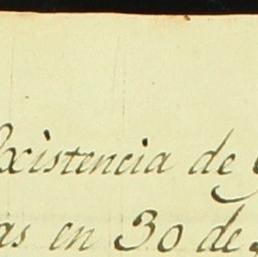 Existencia de
as en 30 de